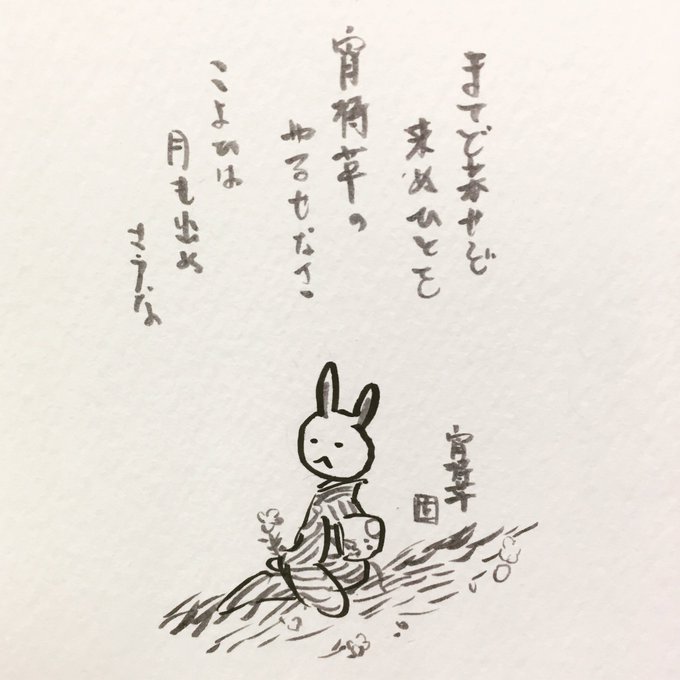 まてど暮せど
来ぬひとを
宵待草の
やるせなさ
こよひは
月も出ぬ
さうな
宵待草